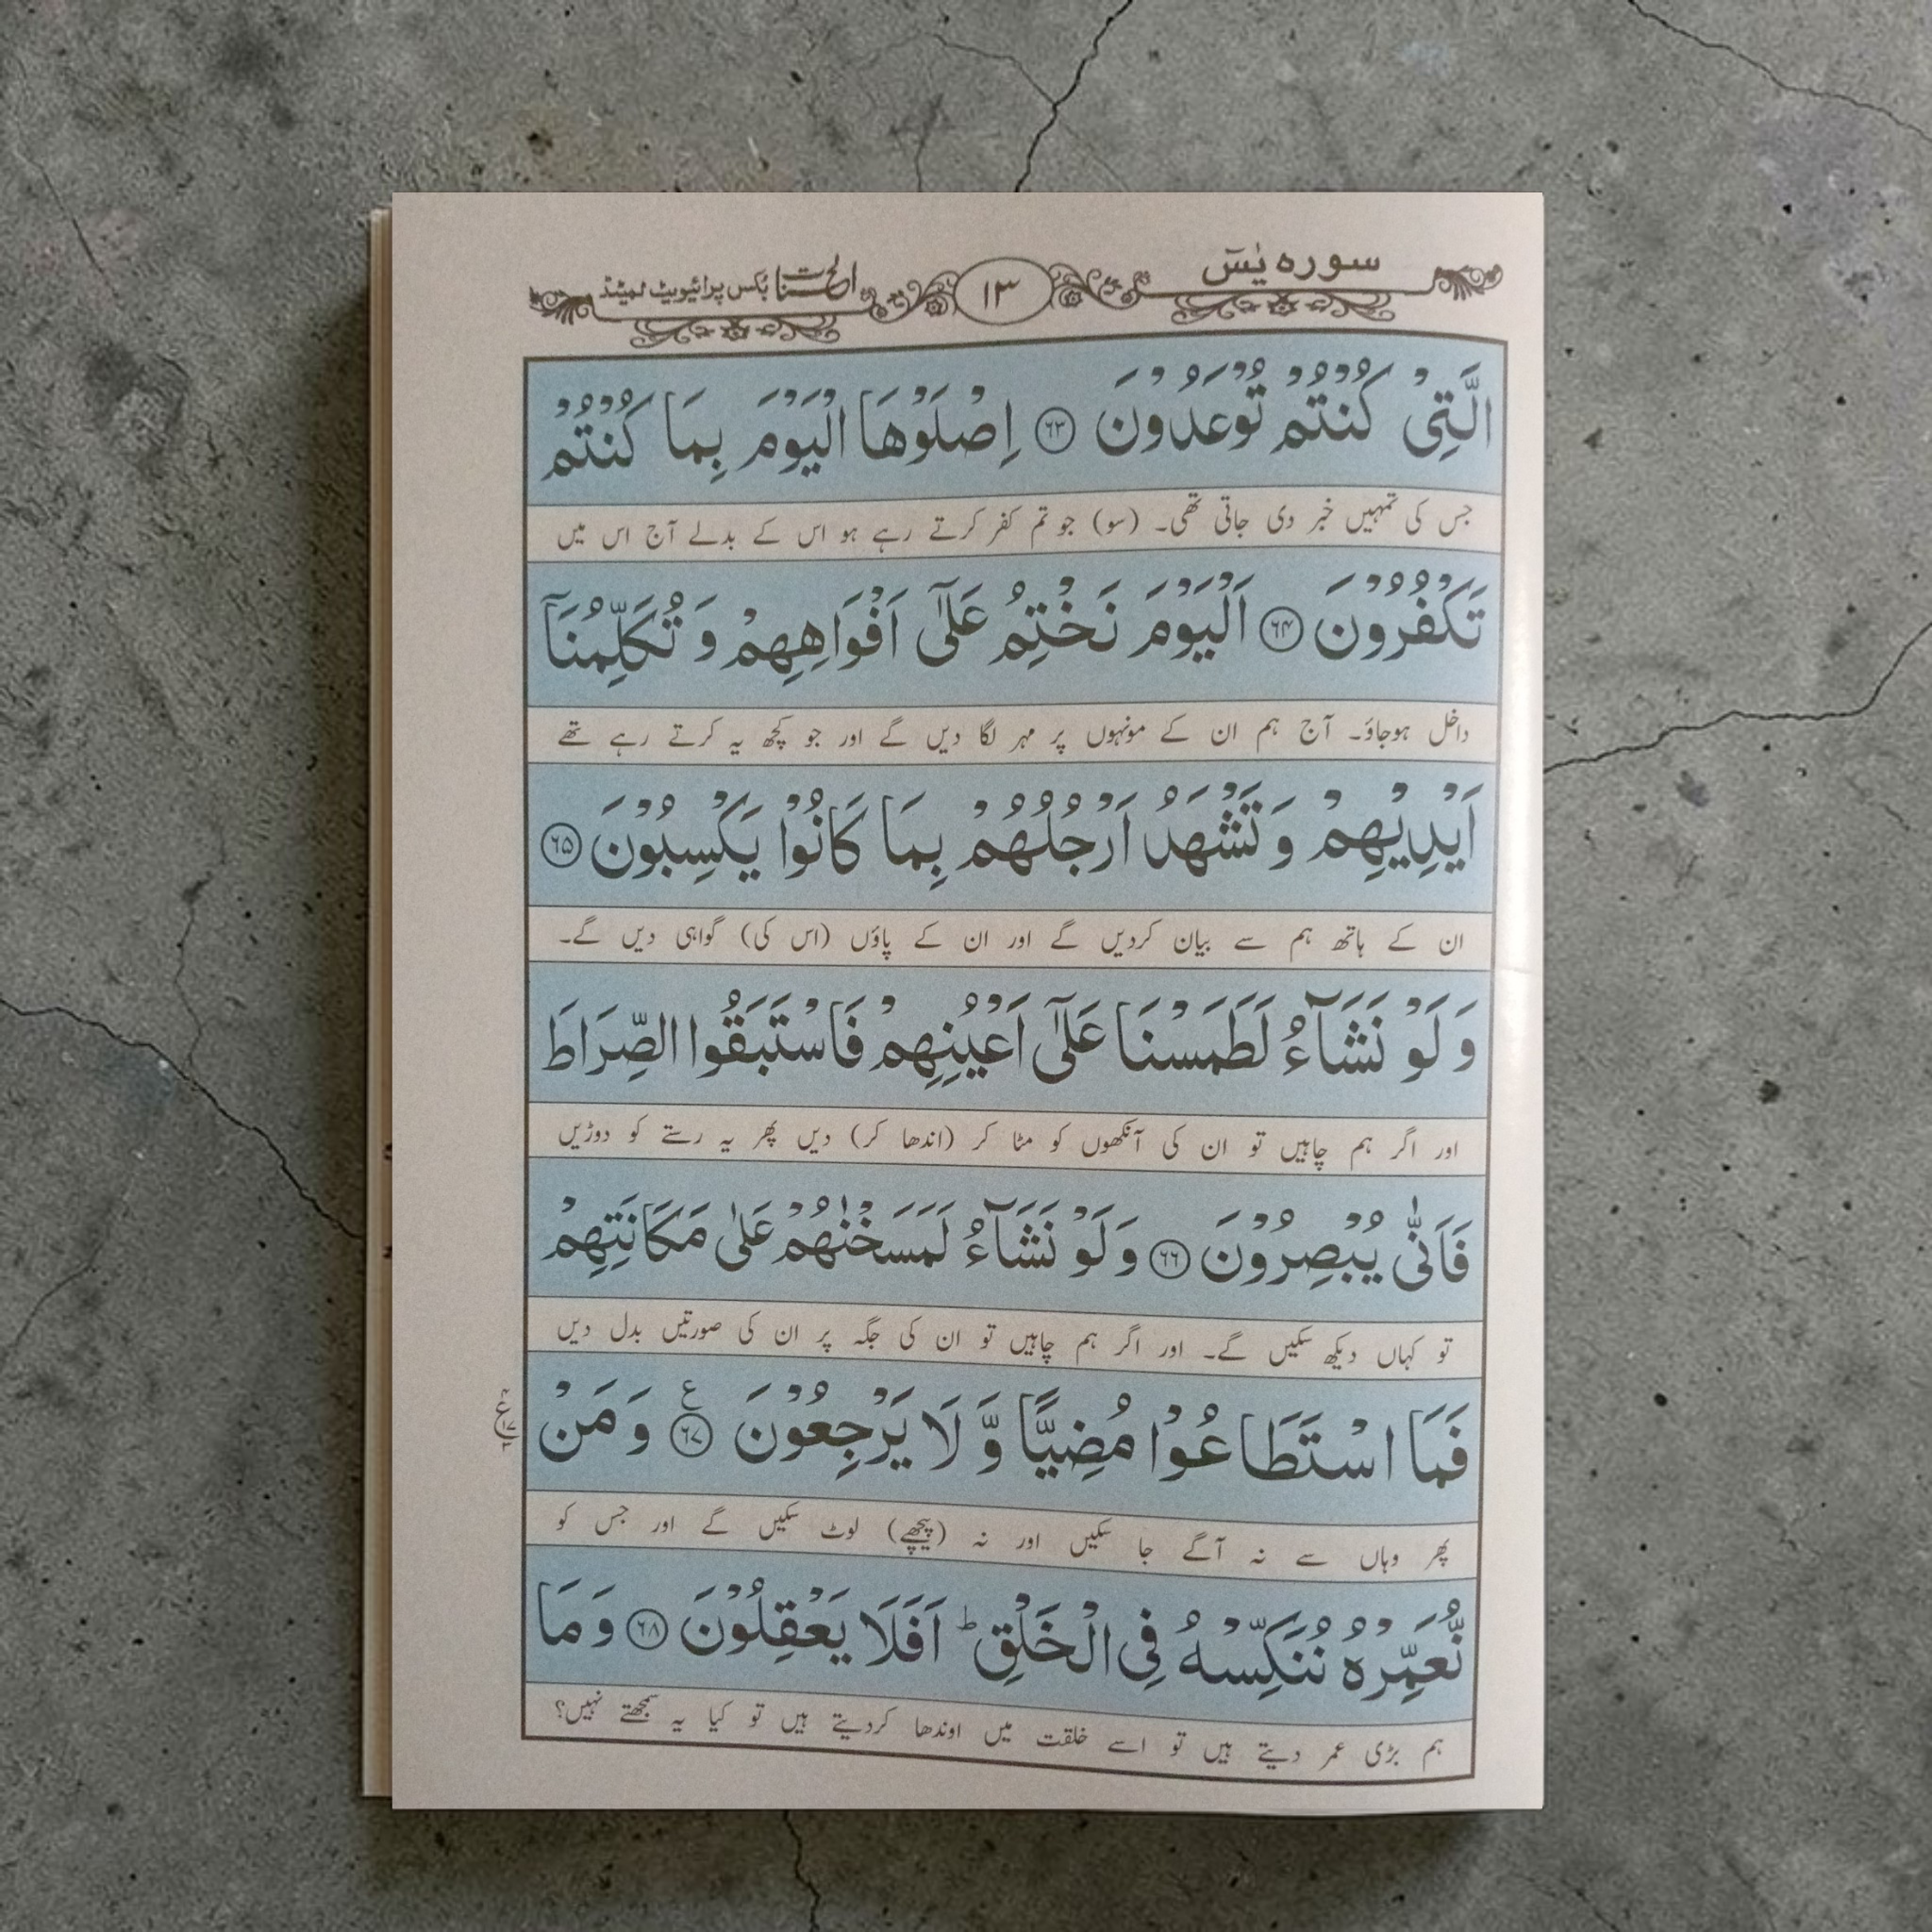 سورہ یٰسٓ
۱۳
الحسنات بکس پرائیویٹ لمیٹڈ
الَّتِیْ كُنْتُمْ تُوْعَدُوْنَ ﴿۶۳﴾ اِصْلَوْهَا الْیَوْمَ بِمَا كُنْتُمْ
جس کی تمہیں خبر دی جاتی تھی۔ (سو) جو تم کفر کرتے رہے ہو اس کے بدلے آج اس میں
تَكْفُرُوْنَ ﴿۶۴﴾ اَلْیَوْمَ نَخْتِمُ عَلٰۤی اَفْوَاهِهِمْ وَ تُكَلِّمُنَاۤ
داخل ہوجاؤ۔ آج ہم ان کے مونہوں پر مہر لگا دیں گے اور جو کچھ یہ کرتے رہے تھے
اَیْدِیْهِمْ وَ تَشْهَدُ اَرْجُلُهُمْ بِمَا كَانُوْا یَكْسِبُوْنَ ﴿۶۵﴾
ان کے ہاتھ ہم سے بیان کردیں گے اور ان کے پاؤں (اس کی) گواہی دیں گے۔
وَ لَوْ نَشَآءُ لَطَمَسْنَا عَلٰۤی اَعْیُنِهِمْ فَاسْتَبَقُوا الصِّرَاطَ
اور اگر ہم چاہیں تو ان کی آنکھوں کو مٹا کر (اندھا کر) دیں پھر یہ رستے کو دوڑیں
فَاَنّٰی یُبْصِرُوْنَ ﴿۶۶﴾ وَ لَوْ نَشَآءُ لَمَسَخْنٰهُمْ عَلٰی مَكَانَتِهِمْ
تو کہاں دیکھ سکیں گے۔ اور اگر ہم چاہیں تو ان کی جگہ پر ان کی صورتیں بدل دیں
فَمَا اسْتَطَاعُوْا مُضِیًّا وَّ لَا یَرْجِعُوْنَ ﴿۶۷﴾ ع وَ مَنْ
پھر وہاں سے نہ آگے جا سکیں اور نہ (پیچھے) لوٹ سکیں گے اور جس کو
نُّعَمِّرْهُ نُنَكِّسْهُ فِی الْخَلْقِ ؕ اَفَلَا یَعْقِلُوْنَ ﴿۶۸﴾ وَ مَا
ہم بڑی عمر دیتے ہیں تو اسے خلقت میں اوندھا کردیتے ہیں تو کیا یہ سمجھتے نہیں؟